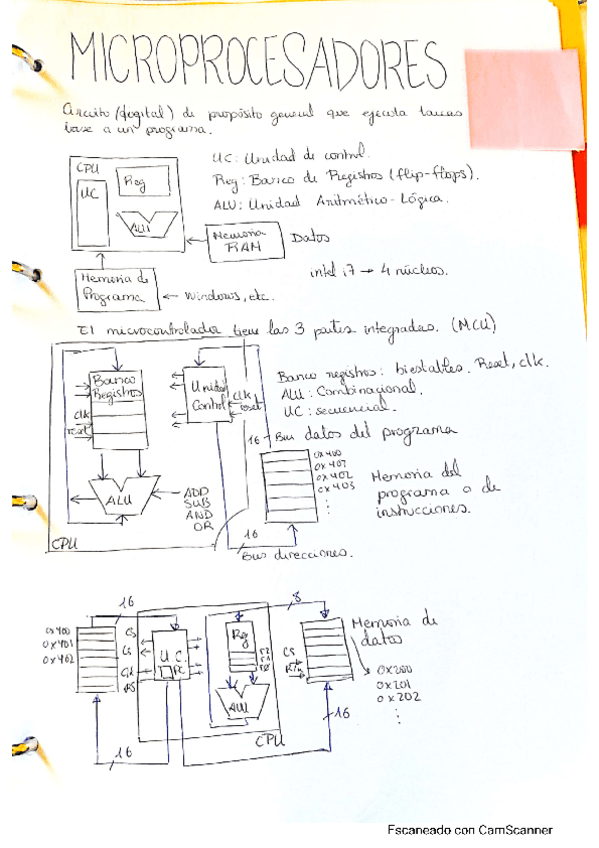 MICROPROCESADORES
Circuito (digital) de propósito general que ejecuta tareas
base a un programa.
CPU
UC
Reg
ALU
UC: Unidad de control.
Reg: Banco de Registros (flip-flops).
ALU: Unidad Aritmético-Lógica.
Memoria
RAM
Datos
intel i7 → 4 núcleos.
Memoria de
Programa
← Windows, etc.
El microcontrolador tiene las 3 partes integradas. (MCU)
Banco
Registros
clk
reset
Unidad
Control
clk
reset
Banco registros: biestables. Reset, clk.
ALU: Combinacional.
UC: secuencial.
16 Bus datos del programa
0x400
0x401
0x402
0x403
⋮
Memoria del
programa o de
instrucciones.
ALU
ADD
SUB
AND
OR
CPU
16
Bus direcciones.
16
8
0x400
0x401
0x402
CS
U.C.
PC
Reg
ALU
CPU
CS
16
16
Memoria de
datos
0x200
0x201
0x202
⋮
Escaneado con CamScanner